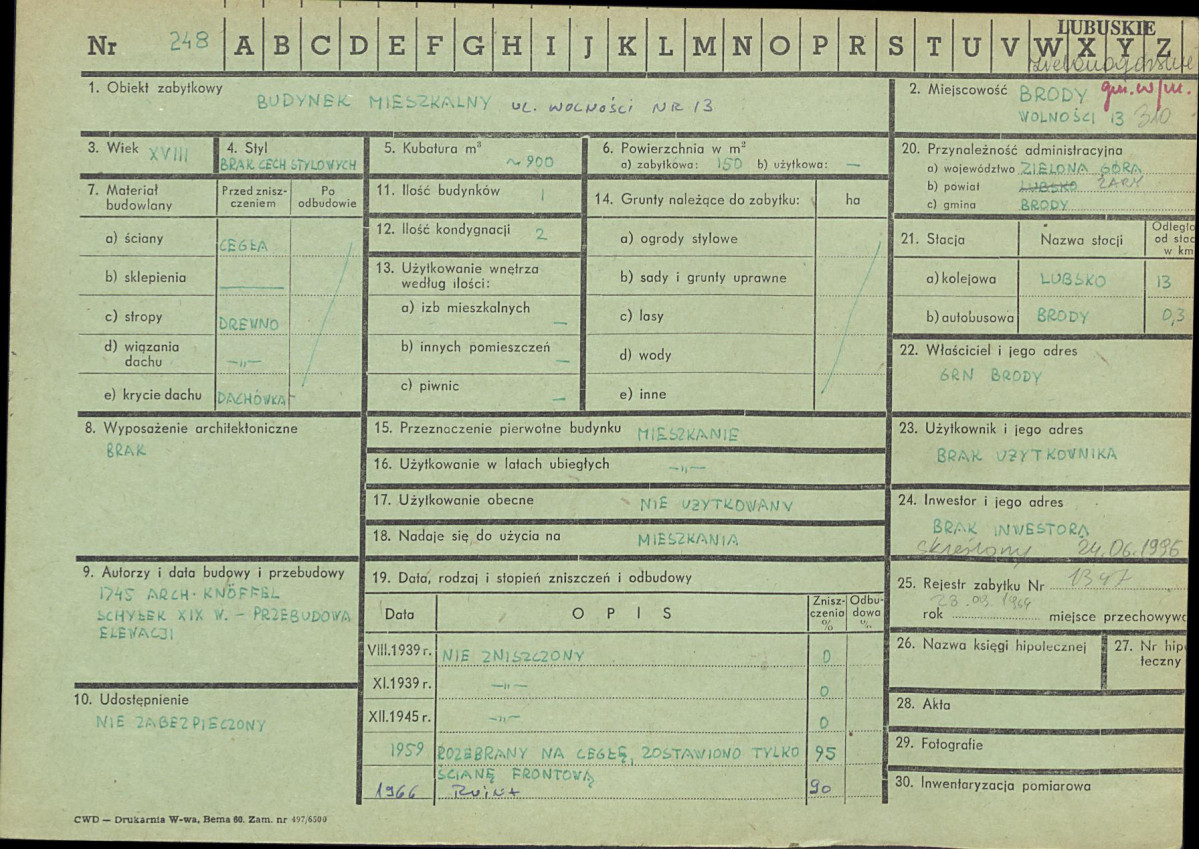 LUBUSKIE
Nr 248 A B C D E F G H I J K L M N O P R S T U V W X Y Z
1. Obiekt zabytkowy
BUDYNEK MIESZKALNY UL. WOLNOŚCI NR 13
2. Miejscowość BRODY gm. w/m.
WOLNOŚCI 13 310
3. Wiek XVIII
4. Styl
BRAK CECH STYLOWYCH
5. Kubatura m³
~900
6. Powierzchnia w m²
a) zabytkowa: 150 b) użytkowa: —
20. Przynależność administracyjna
a) województwo ZIELONA GÓRA
b) powiat LUBSKO ŻARY
c) gmina BRODY
7. Materiał budowlany
Przed zniszczeniem
Po odbudowie
a) ściany CEGŁA
b) sklepienia —
c) stropy DREWNO
d) wiązania dachu —„—
e) krycie dachu DACHÓWKA
11. Ilość budynków 1
12. Ilość kondygnacji 2
13. Użytkowanie wnętrza
według ilości:
a) izb mieszkalnych —
b) innych pomieszczeń —
c) piwnic —
14. Grunty należące do zabytku: ha
a) ogrody stylowe
b) sady i grunty uprawne
c) lasy
d) wody
e) inne
21. Stacja
Nazwa stacji
Odległo
od stac
w km
a) kolejowa LUBSKO 13
b) autobusowa BRODY 0,3
22. Właściciel i jego adres
GRN BRODY
8. Wyposażenie architektoniczne
BRAK
15. Przeznaczenie pierwotne budynku MIESZKANIE
16. Użytkowanie w latach ubiegłych —„—
17. Użytkowanie obecne NIE UŻYTKOWANY
18. Nadaje się do użycia na MIESZKANIA
23. Użytkownik i jego adres
BRAK UŻYTKOWNIKA
24. Inwestor i jego adres
BRAK INWESTORA
skreślony 24.06.1996
9. Autorzy i data budowy i przebudowy
1745 ARCH. KNÖFFEL
SCHYŁEK XIX W. – PRZEBUDOWA
ELEWACJI
10. Udostępnienie
NIE ZABEZPIECZONY
19. Data, rodzaj i stopień zniszczeń i odbudowy
Data
O P I S
Zniszczenia %
Odbudowa %
VIII.1939 r. NIE ZNISZCZONY 0
XI.1939 r. —„— 0
XII.1945 r. —„— 0
1959 ROZEBRANY NA CEGŁĘ, ZOSTAWIONO TYLKO 95
ŚCIANĘ FRONTOWĄ
1966 Ruina 90
25. Rejestr zabytku Nr 1397
rok miejsce przechowywa
26. Nazwa księgi hipotecznej
27. Nr hip
teczny
28. Akta
29. Fotografie
30. Inwentaryzacja pomiarowa
CWD — Drukarnia W-wa, Bema 60. Zam. nr 497/6500